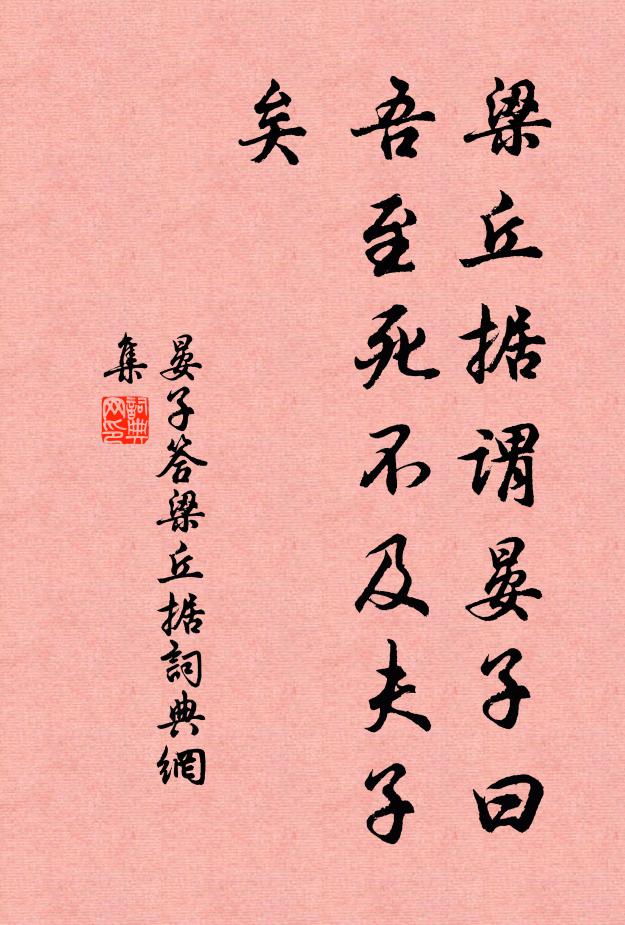 梁丘据谓晏子曰
吾至死不及夫子
矣
晏子答梁丘据詞典網
集
詞典
网印